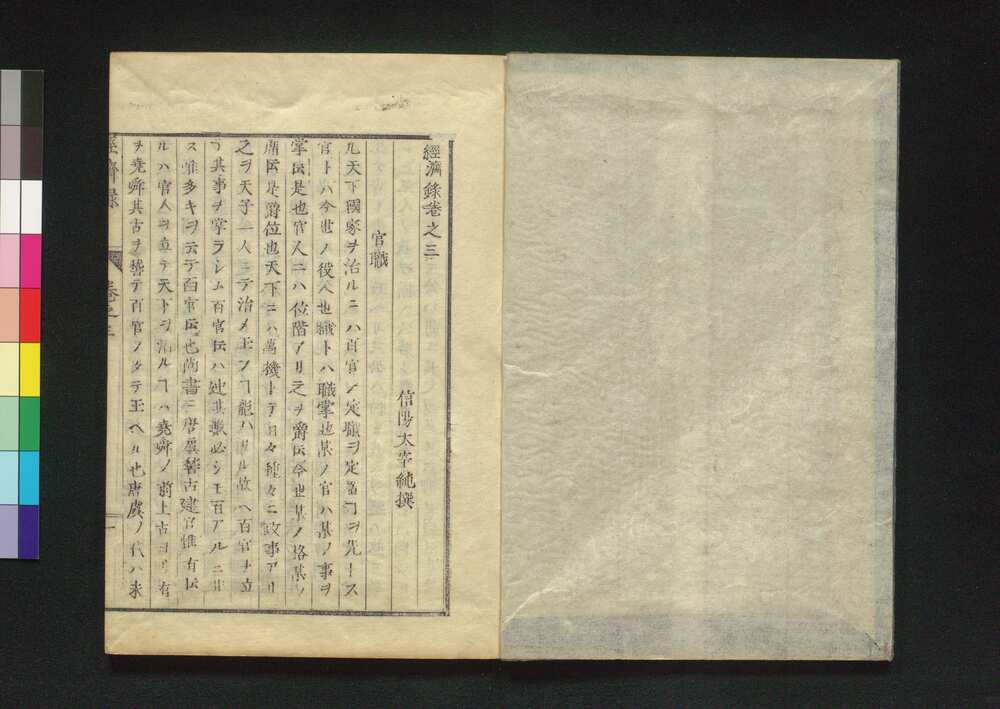 經濟錄卷之三
信陽太宰純撰
官職
凡天下國家ヲ治ルニハ百官ノ定職ヲ定置ヿヲ先トス
官トハ今世ノ役人也職トハ職掌也某ノ官ハ某ノ事ヲ
掌伝是也官人ニハ位階アリ之ヲ爵伝今世某ノ格某ノ
席伝是爵位也天下ニハ萬機トテ日々種々ニ政事アリ
之ヲ天子一人ニテ治メ玉フヿ能ハザル故ヘ百官ヲ立
テ其事ヲ宰ラシム百官伝ハ其數必シモ百アルニ非
ス唯多キヲ云テ百官伝也尚書ニ唐虞稽古建官惟百伝
ルハ官人ヲ立テ天下ヲ治ルヿハ堯舜ノ前上古ヨリ有
ヲ堯舜其古ヲ稽テ百官ノタテ玉ヘル也唐虞ノ代ハ未
經濟錄
卷之三
一